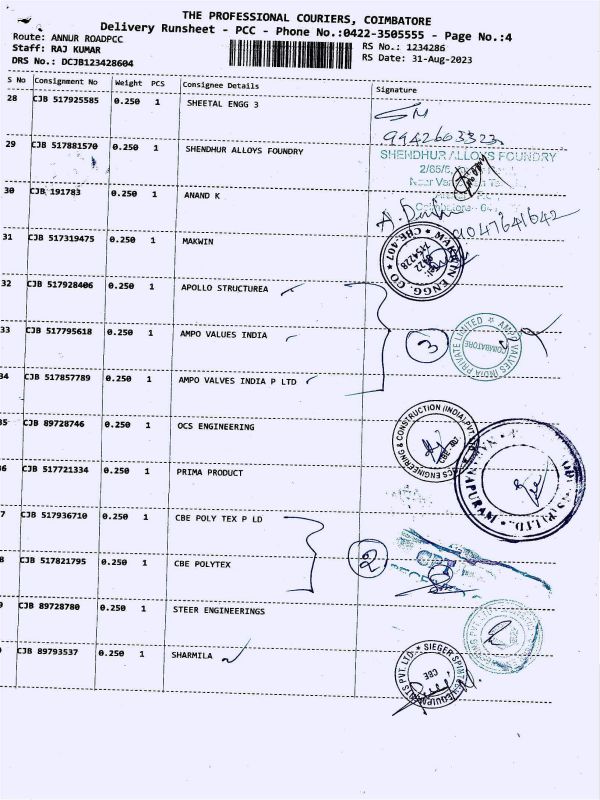 THE PROFESSIONAL COURIERS, COIMBATORE
Delivery Runsheet - PCC - Phone No.:0422-3505555 - Page No.:4
Route: ANNUR ROADPCC
RS No.: 1234286
Staff: RAJ KUMAR
RS Date: 31-Aug-2023
DRS No.: DCJB123428604
S No Consignment No Weight PCS Consignee Details Signature
28 CJB 517925585 0.250 1 SHEETAL ENGG 3
9942603323
29 CJB 517881570 0.250 1 SHENDHUR ALLOYS FOUNDRY
SHENDHUR ALLOYS FOUNDRY
30 CJB 191783 0.250 1 ANAND K
9047641642
31 CJB 517319475 0.250 1 MAKWIN
MAKWIN ENGG. CO
CBE-407
32 CJB 517928406 0.250 1 APOLLO STRUCTUREA
33 CJB 517795618 0.250 1 AMPO VALUES INDIA
3
AMPO VALVES INDIA PRIVATE LIMITED
COIMBATORE
34 CJB 517857789 0.250 1 AMPO VALVES INDIA P LTD
35 CJB 89728746 0.250 1 OCS ENGINEERING
OCS ENGINEERING & CONSTRUCTION (INDIA) PVT
6 CJB 517721334 0.250 1 PRIMA PRODUCT
(P) LTD.
7 CJB 517936710 0.250 1 CBE POLY TEX P LD
2
8 CJB 517821795 0.250 1 CBE POLYTEX
9 CJB 89728780 0.250 1 STEER ENGINEERINGS
0 CJB 89793537 0.250 1 SHARMILA
SIEGER SPINTECH EQUIPMENTS PVT. LTD.
CBE